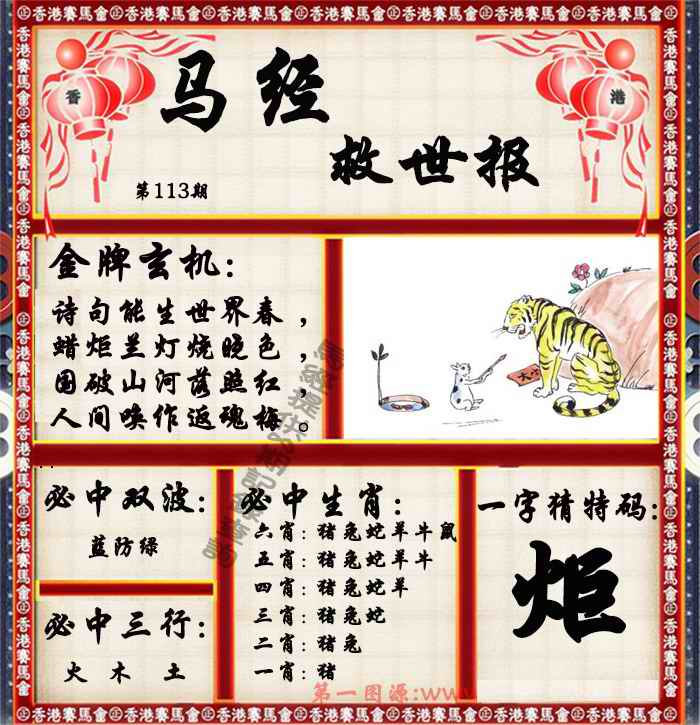 香港賽馬會
香 港
马经
救世报
第113期
金牌玄机:
诗句能生世界春，
蜡炬兰灯烧晚色，
国破山河落照红，
人间唤作返魂梅。
必中双波:
蓝防绿
必中三行:
火 木 土
必中生肖:
六肖: 猪兔蛇羊牛鼠
五肖: 猪兔蛇羊牛
四肖: 猪兔蛇羊
三肖: 猪兔蛇
二肖: 猪兔
一肖: 猪
一字猜特码:
炬
第一图源:www